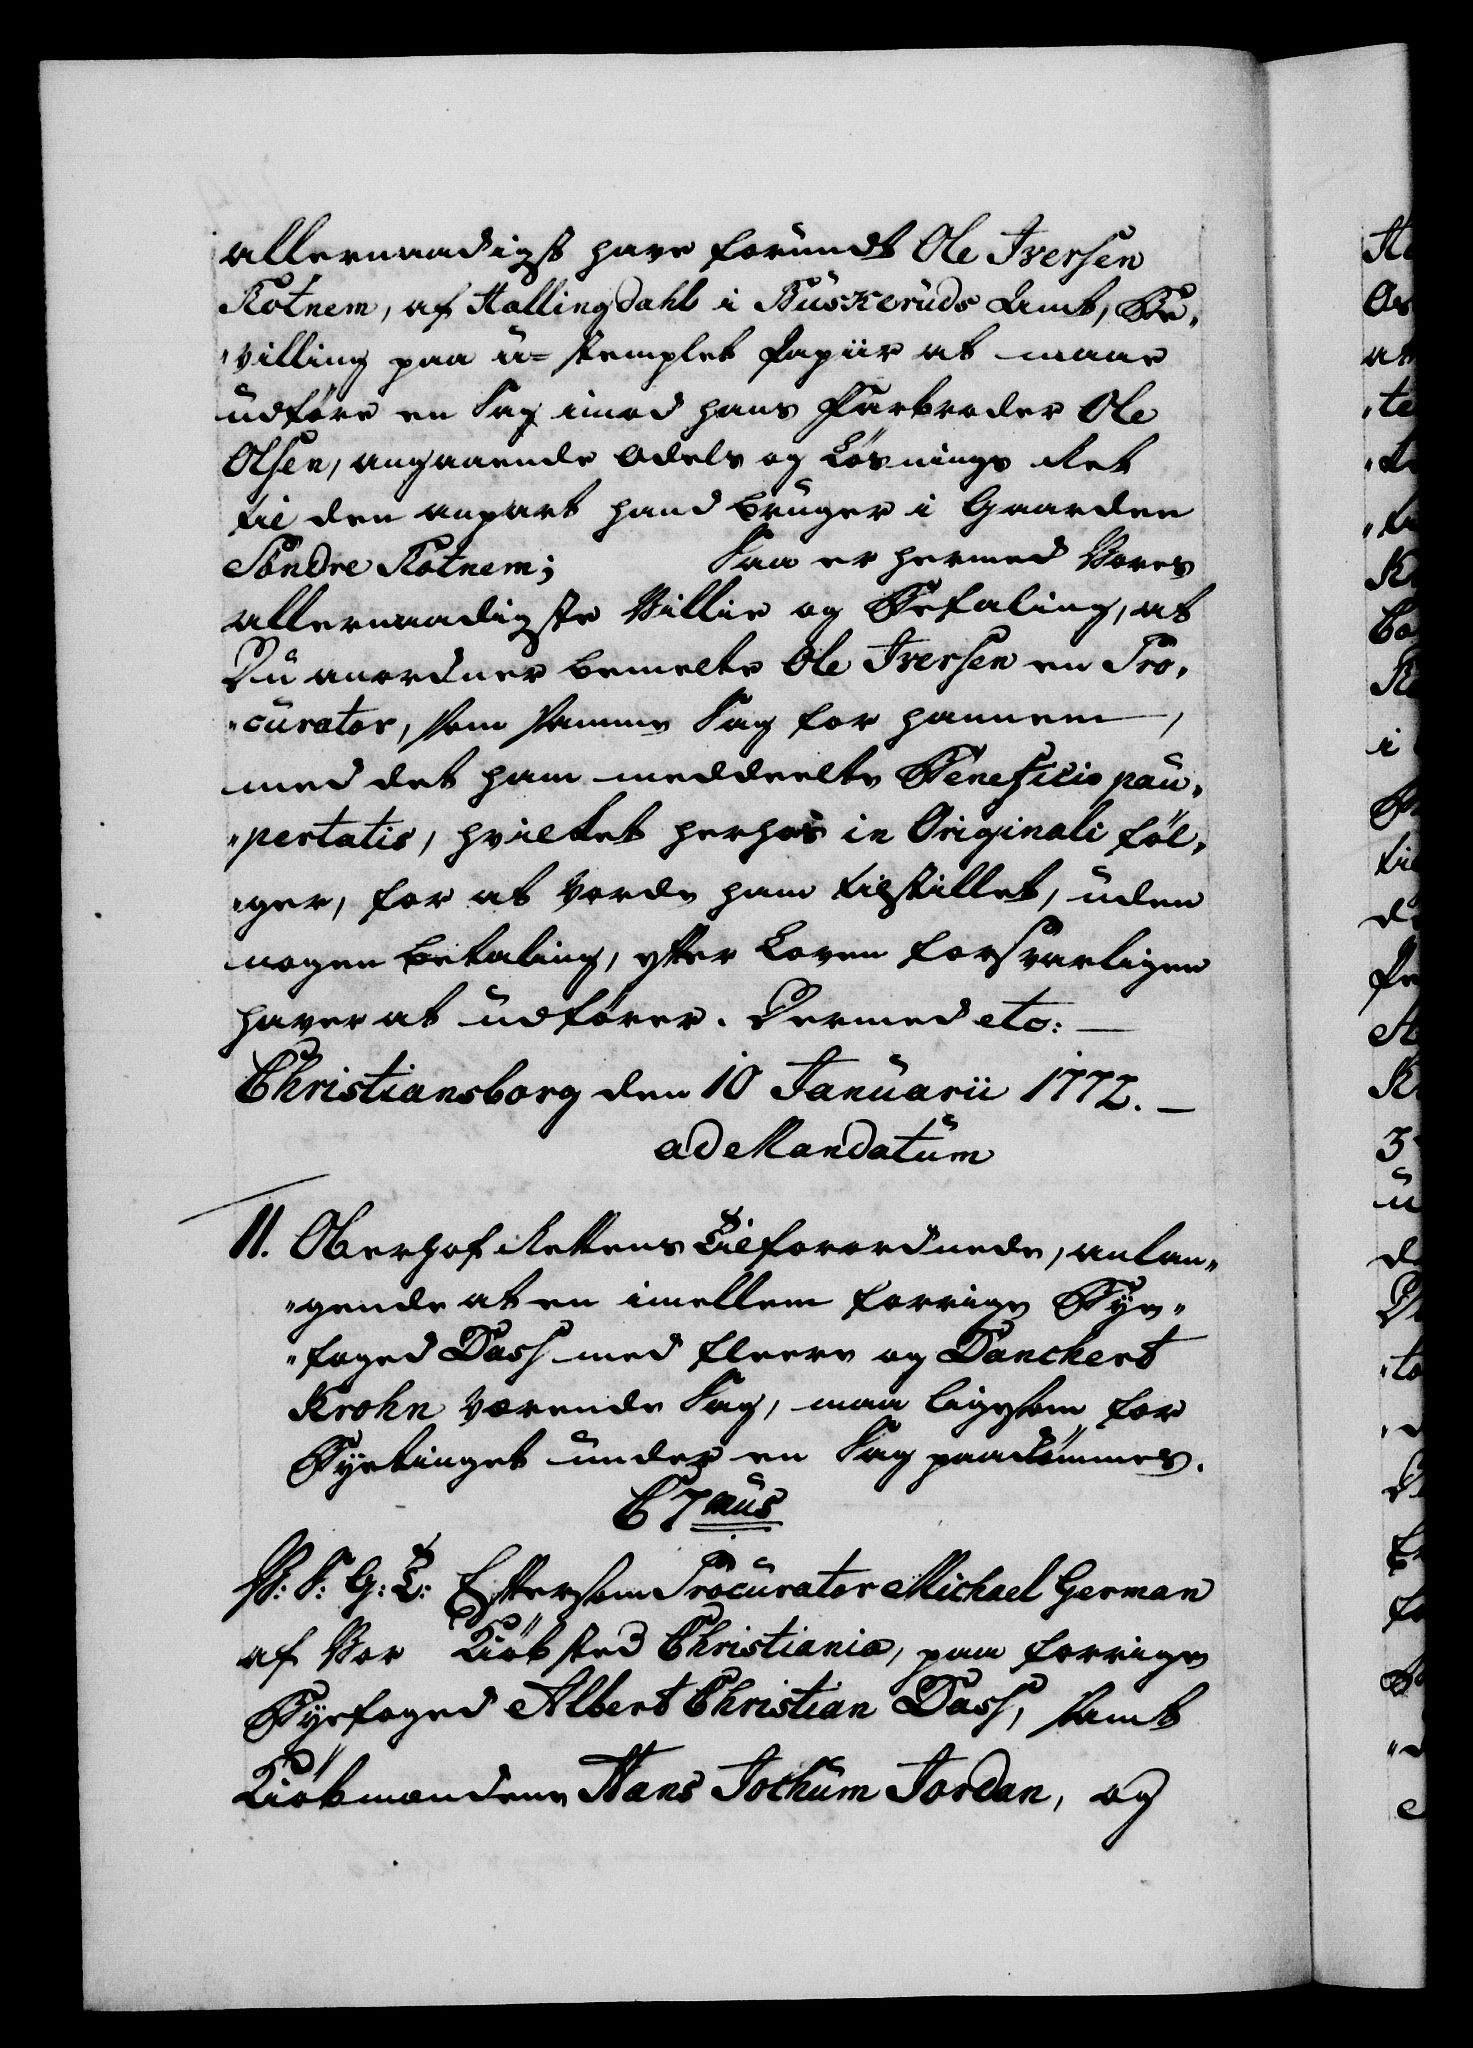 allernaadigst have forundt Ole Iversen
Rotnem, af Hallingdahl i Buskeruds Amt, Be,
„villing paa u= stemplet Papiir at maae
udføre en Sag imod hans Farbroder Ole
Olsen, angaaende Odels og Løsnings Ret
til den anpart hand bruger i Gaarden
Søndre Rotnem; Saa er hermed Vores
allernaadigste Villie og Befaling, at
Du anordner bemelte Ole Iversen en Pro,
„curator, som samme Sag for hannem,
med det ham meddeelte Beneficio pau,
„pertatis, hvilket herhos in Originali føl,
„ger, for at vorde ham tilstillet, uden
nogen betaling, efter Loven forsvarligen
haver at udføre. Dermed etc: —
Christiansborg den 10 Januarii 1772. —
ad Mandatum
11. Oberhof Rettens Tilforordnede, anlan„
„gende at en imellem forrige Bye„
„foged Dass med fleere og Danckert
Krohn værende Sag, maa ligesom for
Byetinget under en Sag paadømmes.
C 7mus
V: S: G: T: Eftersom Procurator Michael German
af Vor Kiøbsted Christiania, paa forrige
Byefoged Albert Christian Dass, samt
Kiøbmændene Hans Jochum Jordan, og